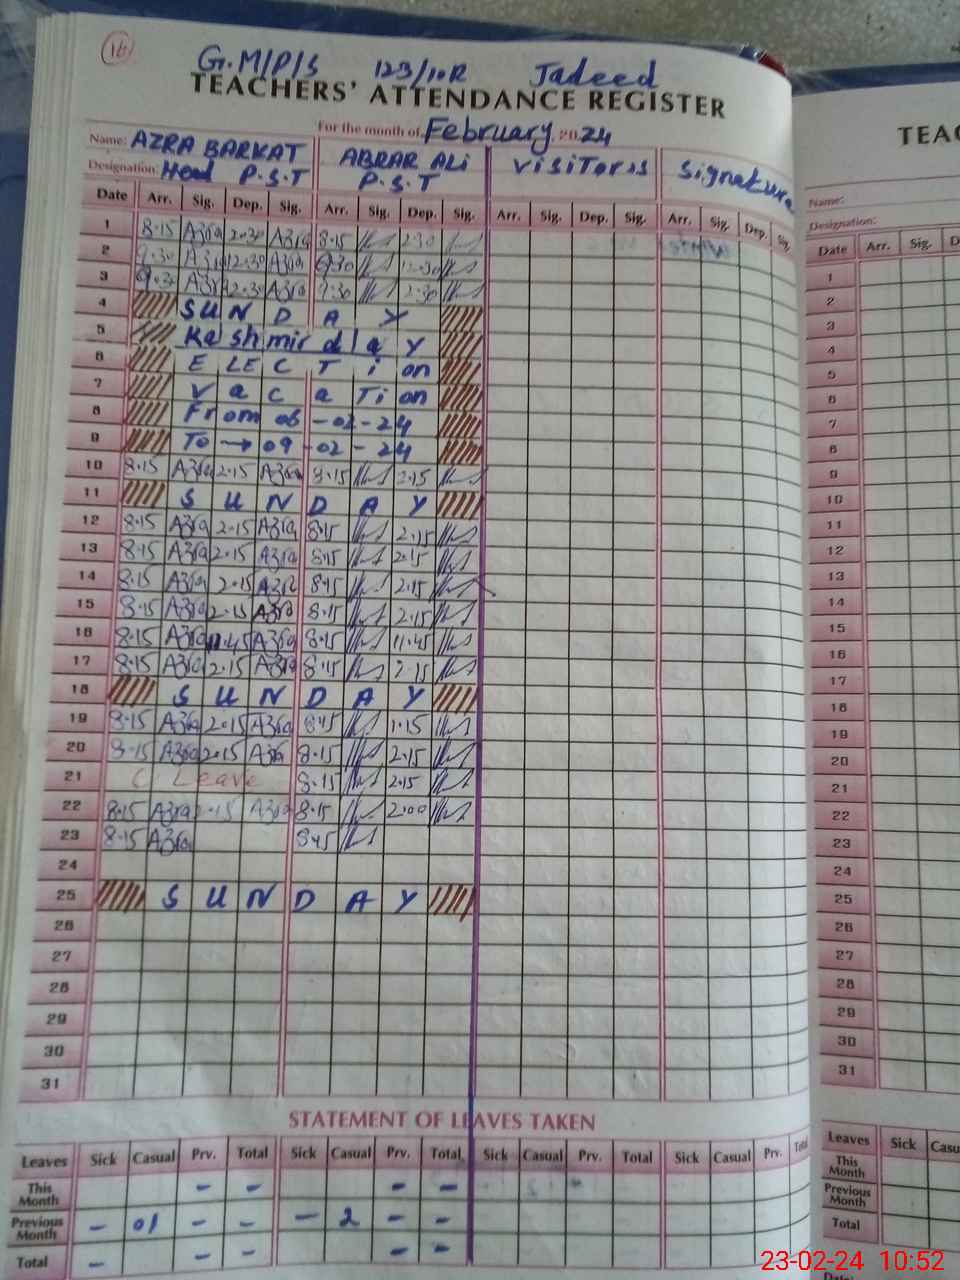 16
G.M/P/S 123/10R Jadeed
TEACHERS' ATTENDANCE REGISTER
For the month of February 2024
Name: AZRA BARKAT ABRAR ALI VISITORSS Signature
Designation: Head P.S.T P.S.T
Date Arr. Sig. Dep. Sig. Arr. Sig. Dep. Sig. Arr. Sig. Dep. Sig. Arr. Sig. Dep. Sig.
1 8.15 Azra 2.30 Azra 8.15 2.30
2 9.30 Azra 12.30 Azra 9.30 12.30
3 9.30 Azra 2.30 Azra 9.30 2.30
4 SUNDAY
5 Kashmir day
6 ELECTion
7 VacaTion
8 From 06-02-24
9 To → 09-02-24
10 8.15 Azra 2.15 Azra 8.15 2.15
11 SUNDAY
12 8.15 Azra 2.15 Azra 8.15 2.15
13 8.15 Azra 2.15 Azra 8.15 2.15
14 8.15 Azra 2.15 Azra 8.15 2.15
15 8.15 Azra 2.15 Azra 8.15 2.15
16 8.15 Azra 11.45 Azra 8.15 11.45
17 8.15 Azra 2.15 Azra 8.15 2.15
18 SUNDAY
19 8.15 Azra 2.15 Azra 8.15 1.15
20 8.15 Azra 2.15 Azra 8.15 2.15
21 C Leave 8.15 2.15
22 8.15 Azra 2.15 Azra 8.15 2.00
23 8.15 Azra 8.15
24
25 SUNDAY
26
27
28
29
30
31
STATEMENT OF LEAVES TAKEN
Leaves Sick Casual Prv. Total Sick Casual Prv. Total Sick Casual Prv. Total Sick Casual Prv. Total
This Month - - - -
Previous Month - 01 - - - 2 - -
Total - - - - -
TEAC
Name:
Designation:
Date Arr. Sig. D
1
2
3
4
5
6
7
8
9
10
11
12
13
14
15
16
17
18
19
20
21
22
23
24
25
26
27
28
29
30
31
Leaves Sick Casu
This Month
Previous Month
Total
23-02-24 10:52